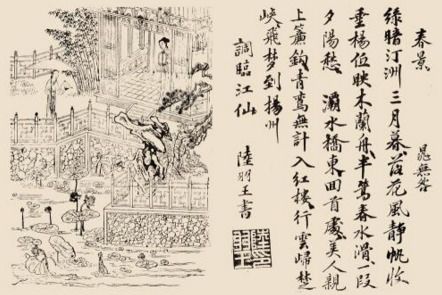 春景 晁無咎
綠暗汀洲三月暮落花風靜帆收
垂楊低映木蘭舟半篙春水滑一段
夕陽愁 灞水橋東回首處美人親
上簾鉤青鸞無計入紅樓行雲歸楚
峽飛夢到揚州
調臨江仙 陸明王書